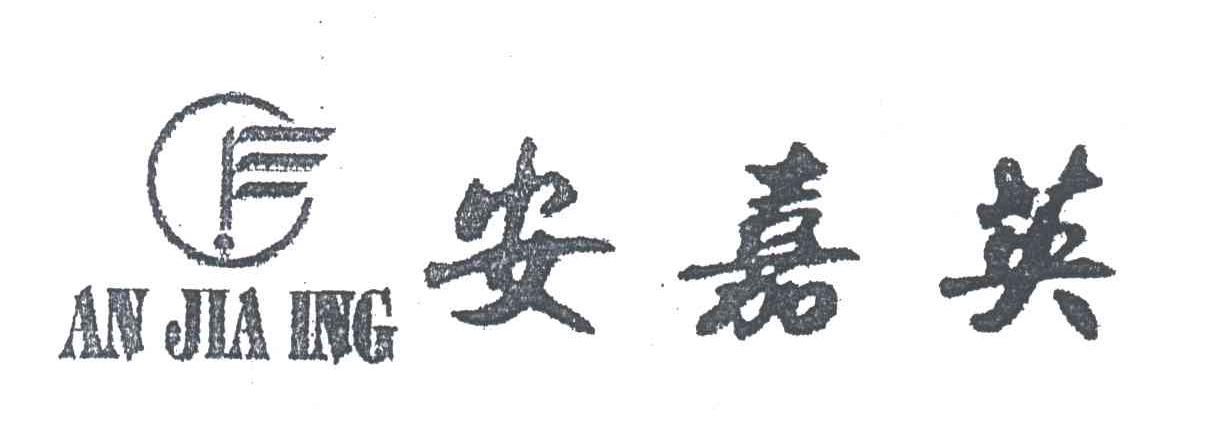 AN JIA ING
安嘉英